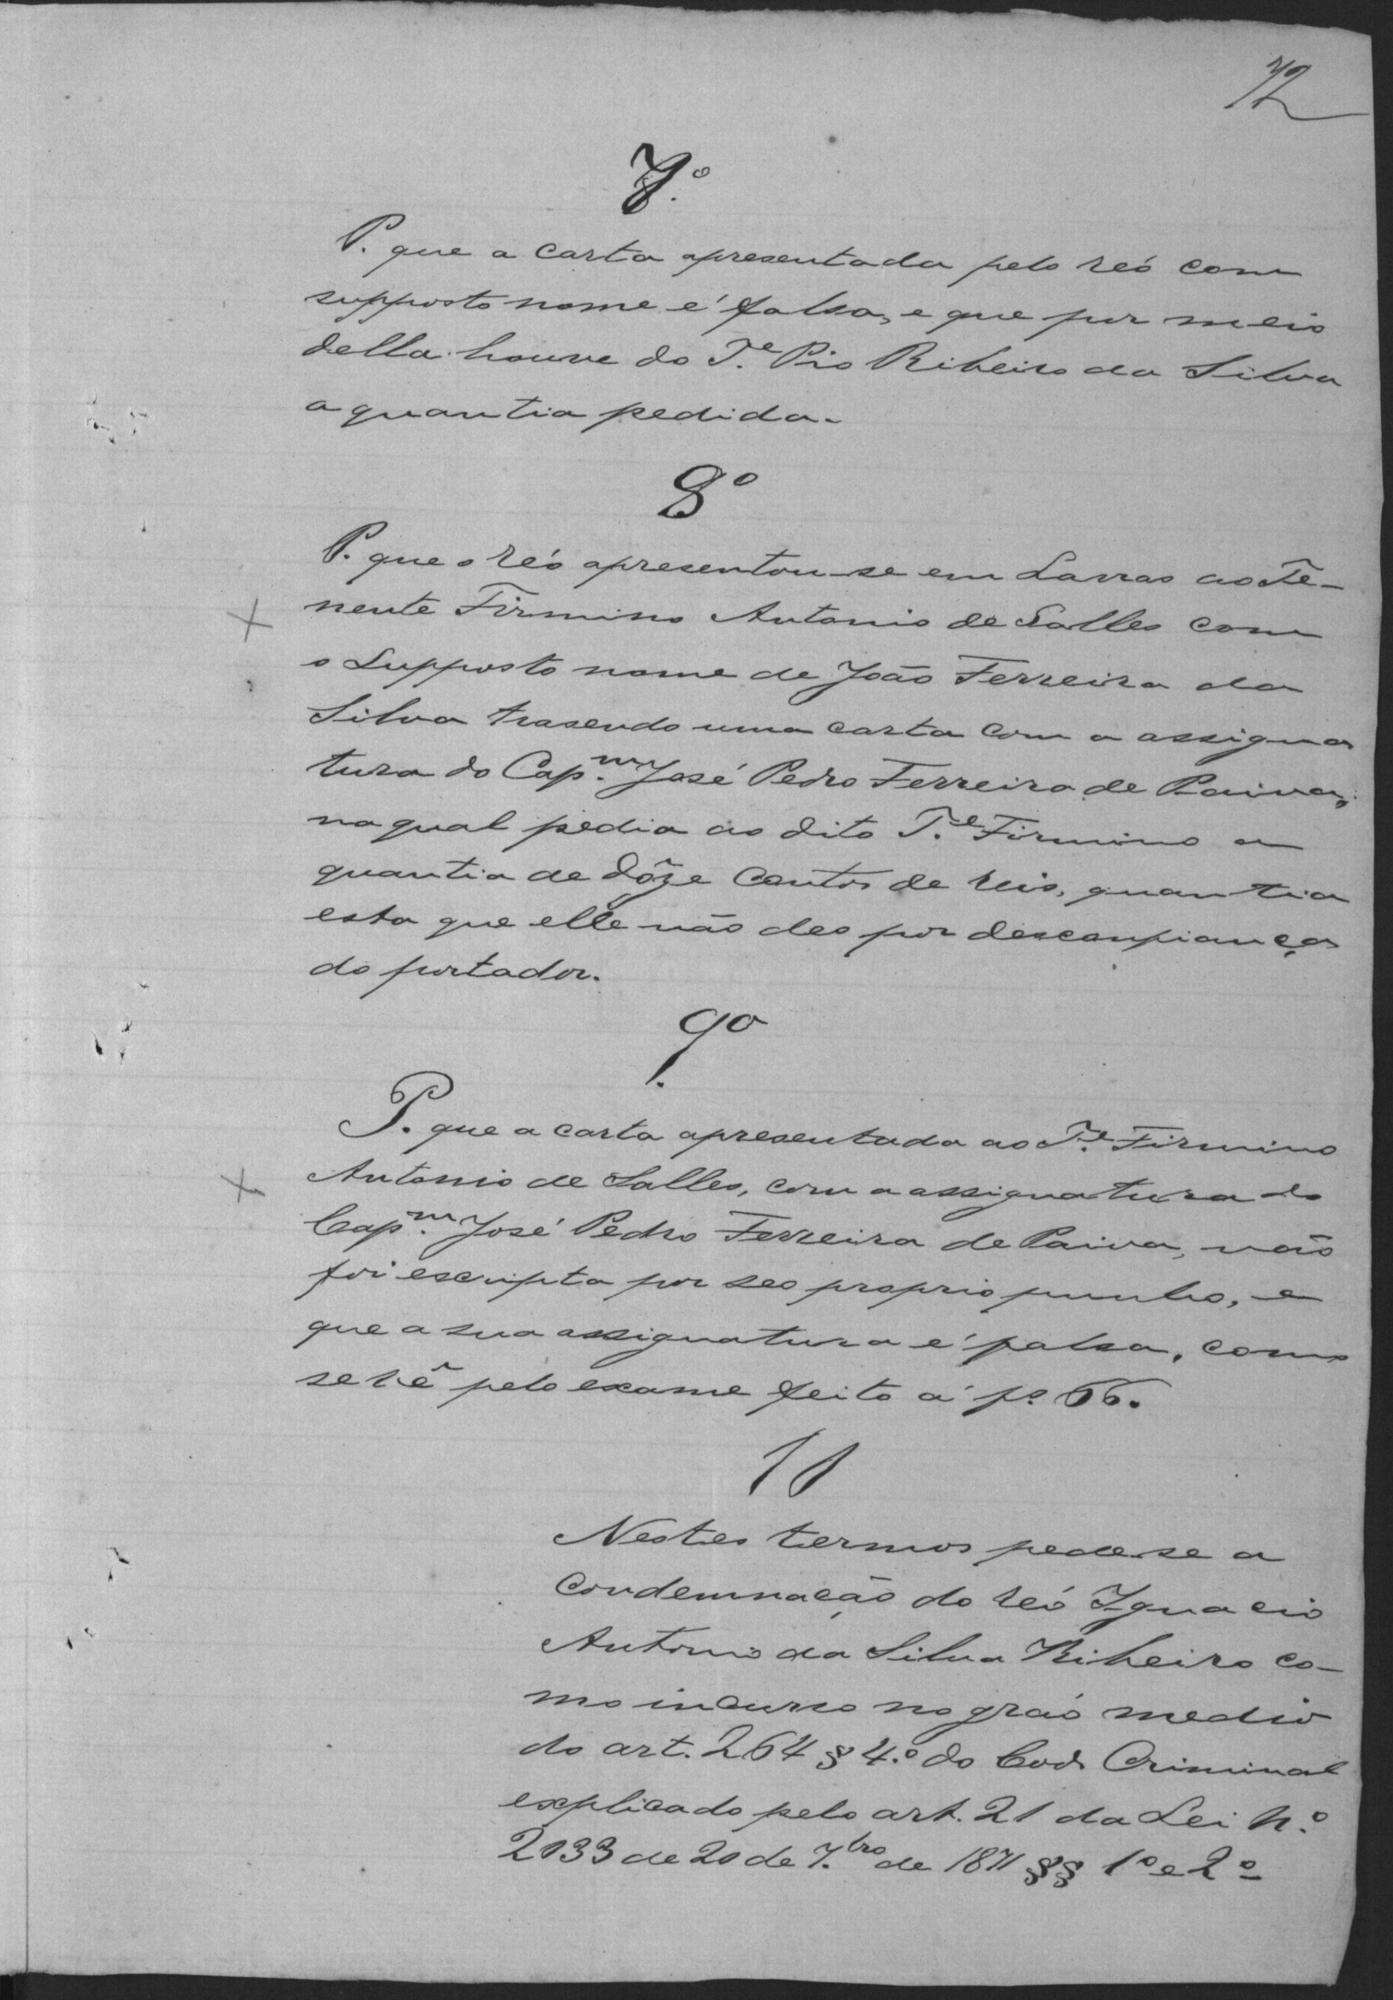 72
7º.
P. que a carta apresentada pelo reó com
supposto nome é falsa, e que por meio
della houve do Tº Pio Ribeiro da Silva
a quantia pedida.
8º
P. que o réo apresentou-se em Lavras ao Te-
nente Firmino Antonio de Salles com
o supposto nome de João Ferreira da
Silva trasendo uma carta com a assigna
tura do Cap.m José Pedro Ferreira de Paiva,
na qual pedia ao dito T.e Firmino a
quantia de dôze contos de reis, quantia
esta que elle não deo por desconfiança
do portador.
9º
P. que a carta apresentada ao T.e Firmino
Antonio de Salles, com a assignatura do
Cap.m José Pedro Ferreira de Paiva, não
foi escripta por seo proprio punho, e
que a sua assignatura é falsa, como
se vê pelo exame feito á fº 66.
11
Nestes termos pede-se a
condemnação do reó Ignacio
Antonio da Silva Ribeiro co-
mo incurso no gráo medio
do art. 264 § 4.º do Cod. Criminal
explicado pelo art. 21 da Lei N.º
2033 de 20 de 7.bro de 1871 §§ 1º e 2º